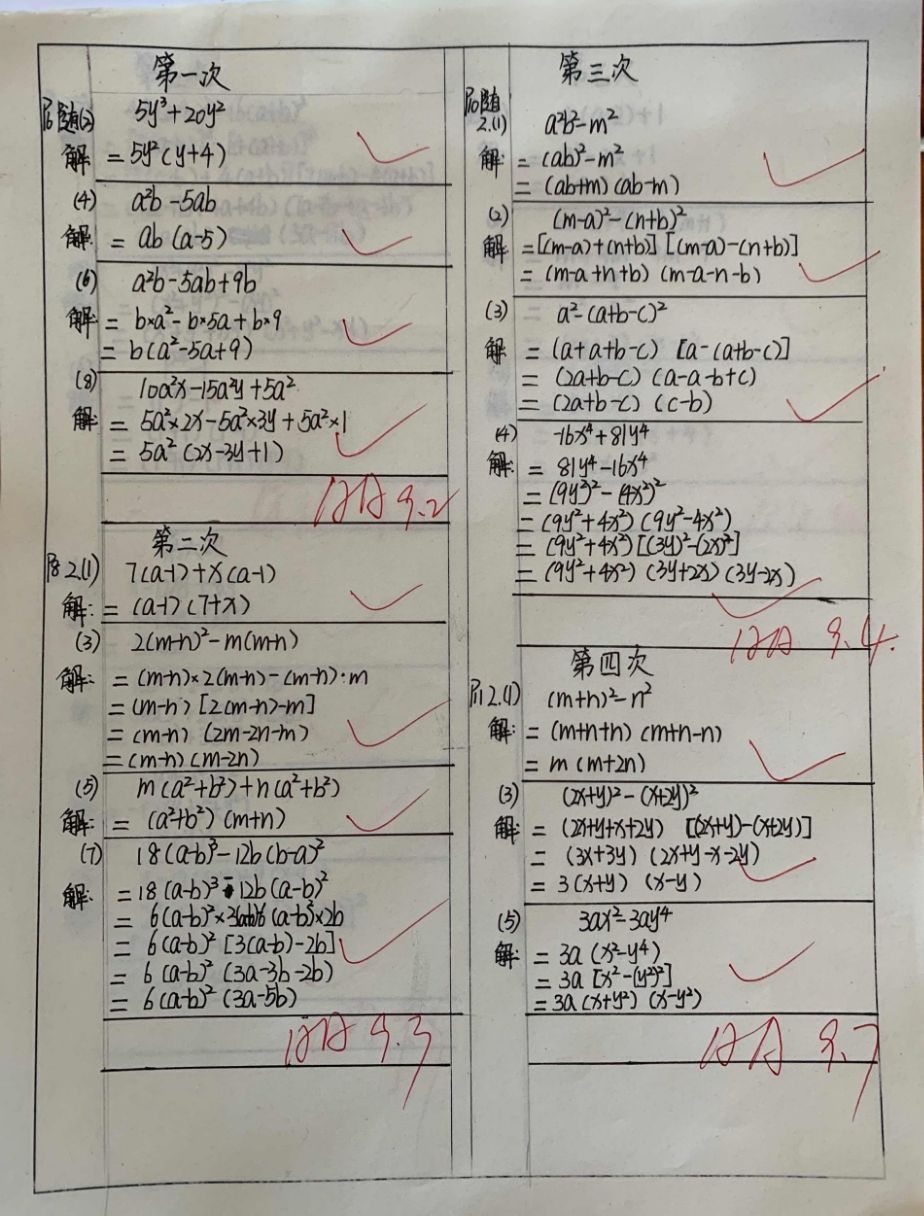 第一次
P6随(2) 5y³+20y²
解: = 5y²(y+4)
(4) a²b-5ab
解: = ab(a-5)
(6) a²b-5ab+9b
解: = b×a²-b×5a+b×9
= b(a²-5a+9)
(8) 10a²x-15a²y+5a²
解: = 5a²×2x-5a²×3y+5a²×1
= 5a²(2x-3y+1)
AA 9.2
第二次
P8 2.(1) 7(a-1)+x(a-1)
解: = (a-1)(7+x)
(3) 2(m-n)²-m(m-n)
解: = (m-n)×2(m-n)-(m-n)·m
= (m-n)[2(m-n)-m]
= (m-n)(2m-2n-m)
= (m-n)(m-2n)
(5) m(a²+b²)+n(a²+b²)
解: = (a²+b²)(m+n)
(7) 18(a-b)³-12b(b-a)²
解: = 18(a-b)³-12b(a-b)²
= 6(a-b)²×3(a-b)-6(a-b)²×2b
= 6(a-b)²[3(a-b)-2b]
= 6(a-b)²(3a-3b-2b)
= 6(a-b)²(3a-5b)
AA 9.3
第三次
P10随
2.(1) a²b²-m²
解: = (ab)²-m²
= (ab+m)(ab-m)
(2) (m-a)²-(n+b)²
解: =[(m-a)+(n+b)][(m-a)-(n+b)]
= (m-a+n+b)(m-a-n-b)
(3) a²-(a+b-c)²
解: = (a+a+b-c)[a-(a+b-c)]
= (2a+b-c)(a-a-b+c)
= (2a+b-c)(c-b)
(4) -16x⁴+81y⁴
解: = 81y⁴-16x⁴
= (9y²)²-(4x²)²
= (9y²+4x²)(9y²-4x²)
= (9y²+4x²)[(3y)²-(2x)²]
= (9y²+4x²)(3y+2x)(3y-2x)
AA 9.4.
第四次
P11 2.(1) (m+n)²-n²
解: = (m+n+n)(m+n-n)
= m(m+2n)
(3) (2x+y)²-(x+2y)²
解: = (2x+y+x+2y)[(2x+y)-(x+2y)]
= (3x+3y)(2x+y-x-2y)
= 3(x+y)(x-y)
(5) 3ax²-3ay⁴
解: = 3a(x²-y⁴)
= 3a[x²-(y²)²]
= 3a(x+y²)(x-y²)
AA 9.7